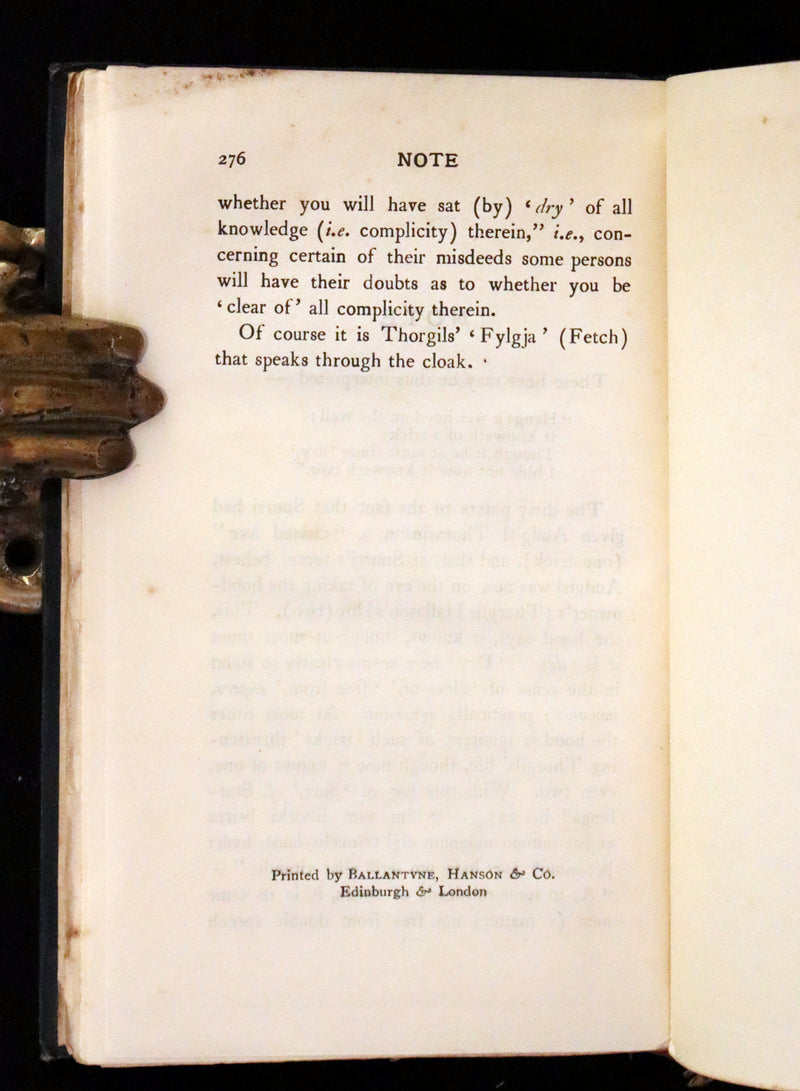 276 NOTE
whether you will have sat (by) ‘dry’ of all
knowledge (i.e. complicity) therein,” i.e., con-
cerning certain of their misdeeds some persons
will have their doubts as to whether you be
‘clear of’ all complicity therein.
Of course it is Thorgils’ ‘Fylgja’ (Fetch)
that speaks through the cloak.
Printed by BALLANTYNE, HANSON & CO.
Edinburgh & London